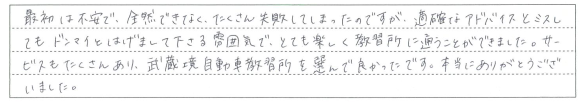 最初は不安で、全然できなく、たくさん失敗してしまったのですが、適確なアドバイスとミスし
てもドンマイとはげまして下さる雰囲気で、とても楽しく教習所に通うことができました。サー
ビスもたくさんあり、武蔵境自動車教習所を選んで良かったです。本当にありがとうござ
いました。